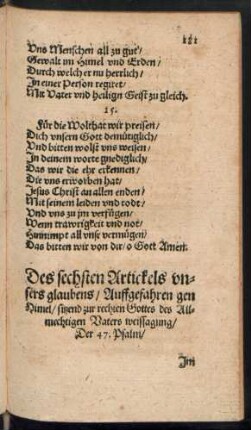 111
Vns Menschen all zu gut/
Gewalt im Himel vnd Erden/
Durch welch er nu herrlich/
In einer Person regiret/
Mit Vater vnd heilign Geist zu gleich.
15.
Für die Wolthat wir preisen/
Dich vnsern Gott demütiglich/
Vnd bitten wolst vns weisen/
In deinem worte gnediglich/
Das wir die ehr erkennen/
Die vns erworben hat/
Jesus Christ an allen enden/
Mit seinem leiden vnd todt/
Vnd vns zu jm verfügen/
Wenn trawrigkeit vnd not/
Hinnimpt all vnser vermügen/
Das bitten wir von dir/ o Gott Amen.
Des sechsten Artickels vn-
sers glaubens/ Auffgefahren gen
Himel/ sitzend zur rechten Gottes des All-
mechtigen Vaters weissagung/
Der 47. Psalm/
Im